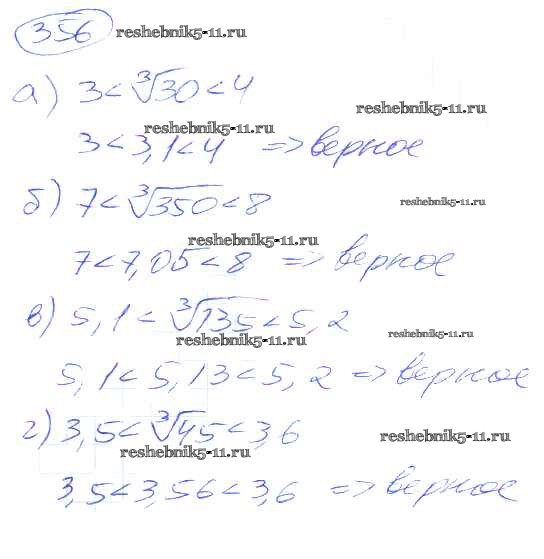 356 reshebnik5-11.ru
а) 3 < ∛30 < 4
reshebnik5-11.ru
reshebnik5-11.ru
3 < 3,1 < 4 => верное
б) 7 < ∛350 < 8
reshebnik5-11.ru
reshebnik5-11.ru
7 < 7,05 < 8 => верное
в) 5,1 < ∛135 < 5,2
reshebnik5-11.ru
reshebnik5-11.ru
5,1 < 5,13 < 5,2 => верное
г) 3,5 < ∛45 < 3,6
reshebnik5-11.ru
reshebnik5-11.ru
3,5 < 3,56 < 3,6 => верное